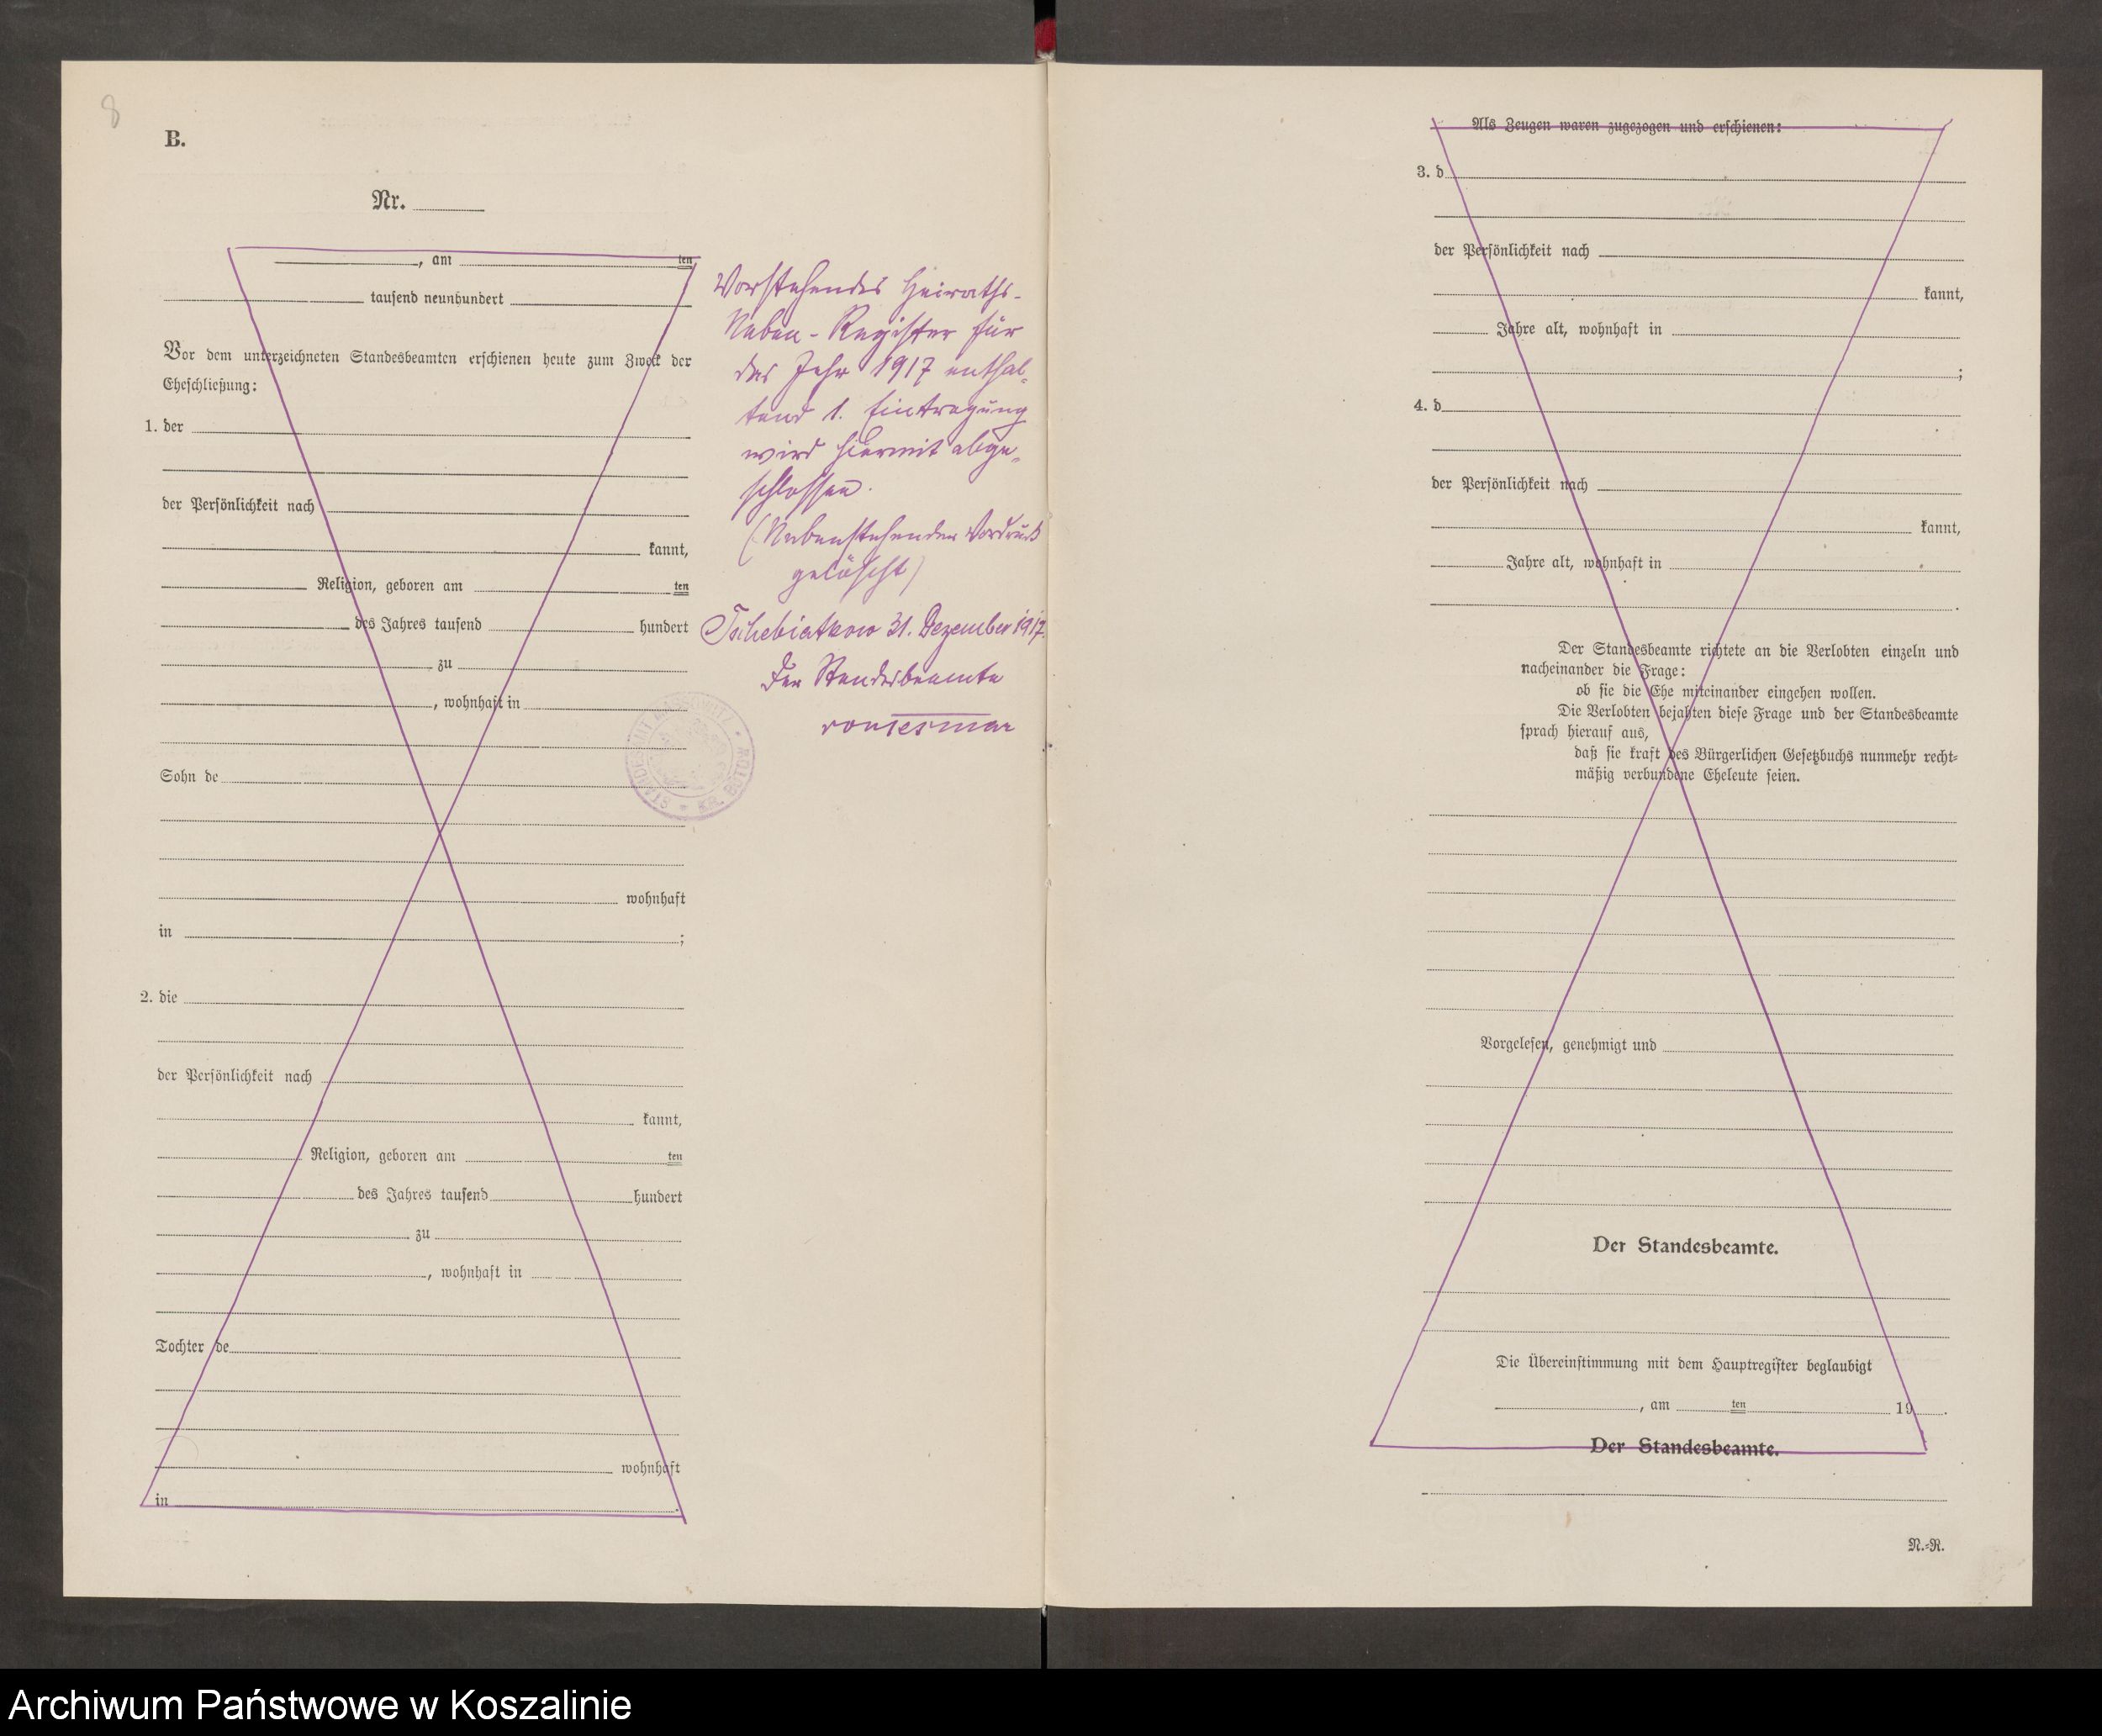 8
B.
Nr.
, am ten
tausend neunhundert
Vor dem unterzeichneten Standesbeamten erschienen heute zum Zweck der
Eheschließung:
1. der
der Persönlichkeit nach
kannt,
Religion, geboren am ten
des Jahres tausend hundert
zu
, wohnhaft in
Sohn de
wohnhaft
in ;
2. die
der Persönlichkeit nach
kannt,
Religion, geboren am ten
des Jahres tausend hundert
zu
, wohnhaft in
Tochter de
wohnhaft
in .
Vorstehendes Heiraths-
Neben-Register für
das Jahr 1917 enthal-
tend 1. Eintragung
wird hiermit abge-
schlossen.
(Nebenstehender Vordruck
gelöscht)
Tschebiatkow 31. Dezember 1917.
Der Standesbeamte
STANDESAMT KR. BÜTOW
Als Zeugen waren zugezogen und erschienen:
3. d
der Persönlichkeit nach
kannt,
Jahre alt, wohnhaft in
;
4. d
der Persönlichkeit nach
kannt,
Jahre alt, wohnhaft in
.
Der Standesbeamte richtete an die Verlobten einzeln und
nacheinander die Frage:
ob sie die Ehe miteinander eingehen wollen.
Die Verlobten bejahten diese Frage und der Standesbeamte
sprach hierauf aus,
daß sie kraft des Bürgerlichen Gesetzbuchs nunmehr recht-
mäßig verbundene Eheleute seien.
Vorgelesen, genehmigt und
Der Standesbeamte.
Die Übereinstimmung mit dem Hauptregister beglaubigt
, am ten 19 .
Der Standesbeamte.
N.-R.
Archiwum Państwowe w Koszalinie